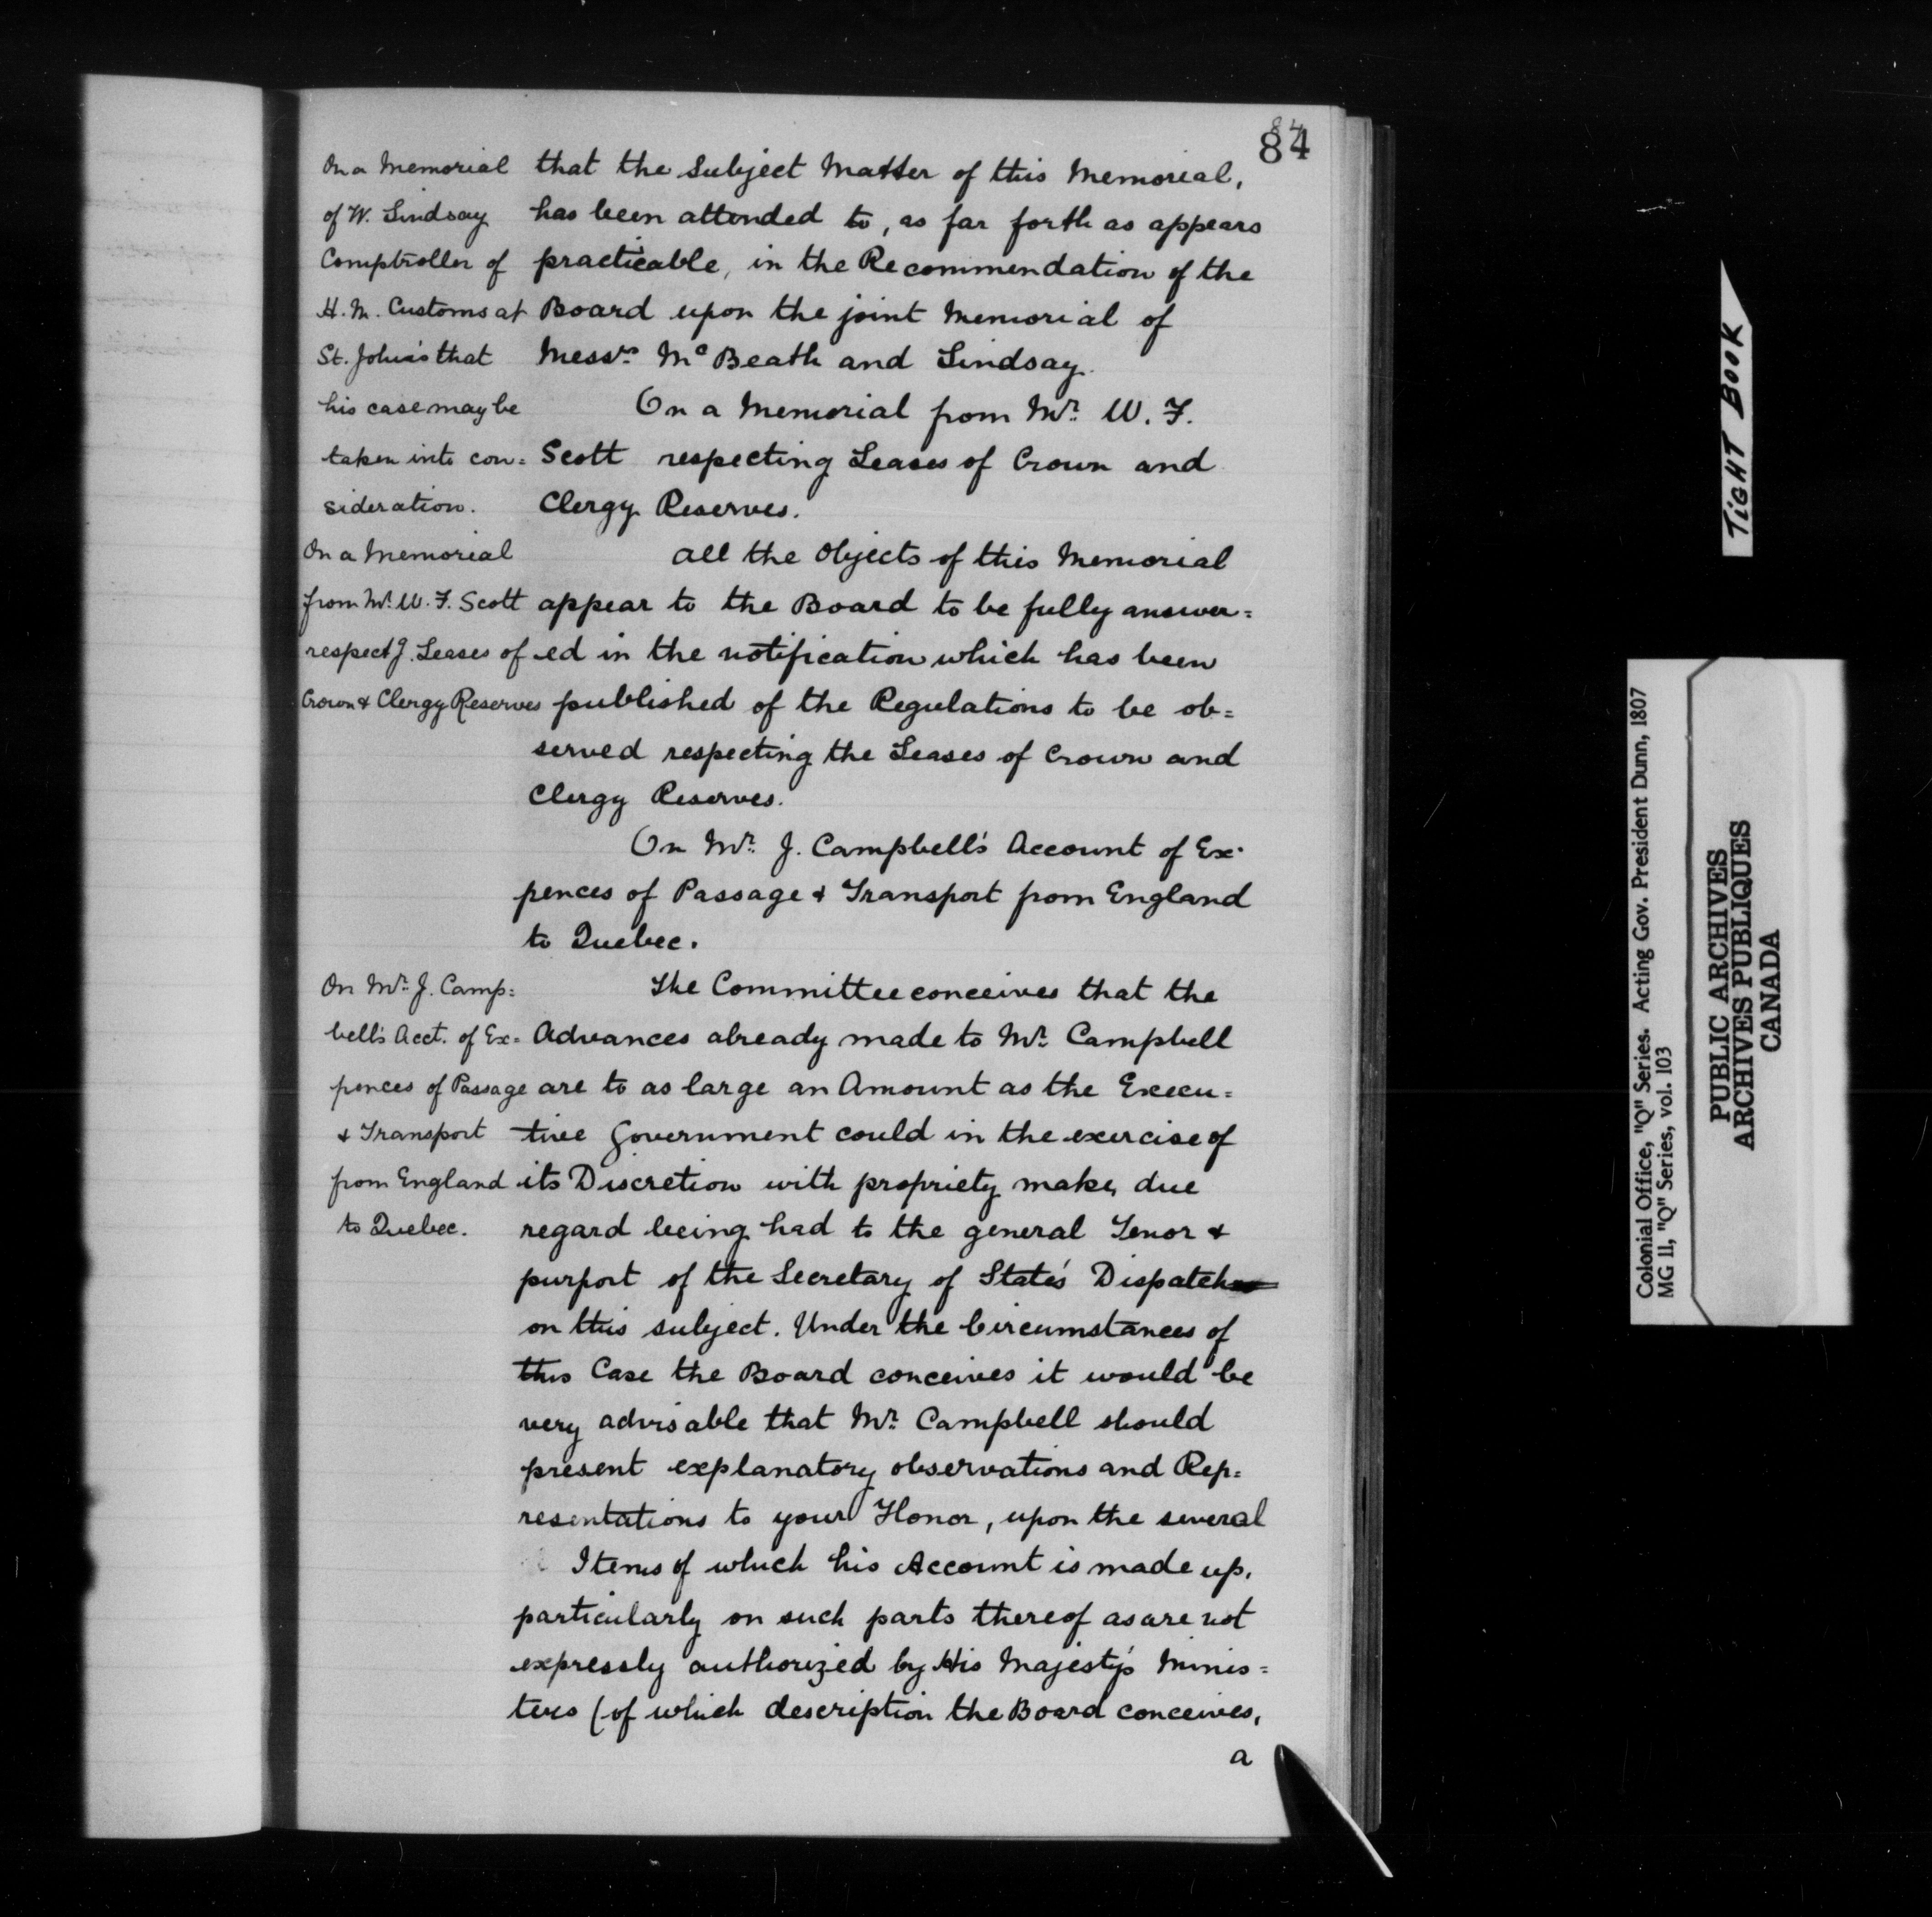 84
84
On a Memorial
of W. Lindsay
Comptroller of
H.M. Customs at
St. John's that
his case may be
taken into con=
sideration.
that the Subject Matter of this Memorial,
has been attended to, as far forth as appears
practicable, in the Recommendation of the
Board upon the joint Memorial of
Messrs McBeath and Lindsay.
On a Memorial from Mr. W. F.
Scott respecting Leases of Crown and
Clergy Reserves.
On a Memorial
from Mr. W. F. Scott
respectg. Leases of
Crown & Clergy Reserves
All the Objects of this Memorial
appear to the Board to be fully answer=
ed in the notification which has been
published of the Regulations to be ob=
served respecting the Leases of Crown and
Clergy Reserves.
On Mr. J. Campbell's Account of Ex-
pences of Passage & Transport from England
to Quebec.
On Mr. J. Camp=
bell's Acct. of Ex=
pences of Passage
& Transport
from England
to Quebec.
The Committee conceives that the
Advances already made to Mr. Campbell
are to as large an Amount as the Execu=
tive Government could in the exercise of
its Discretion with propriety make, due
regard being had to the general Tenor &
purport of the Secretary of State's Dispatch
on this subject. Under the Circumstances of
this Case the Board conceives it would be
very advisable that Mr. Campbell should
present explanatory observations and Rep=
resentations to your Honor, upon the several
Items of which his Account is made up,
particularly on such parts thereof as are not
expressly authorized by His Majesty's Minis=
ters (of which description the Board conceives,
a
TIGHT BOOK
Colonial Office, "Q" Series. Acting Gov. President Dunn, 1807
MG 11, "Q" Series, vol. 103
PUBLIC ARCHIVES
ARCHIVES PUBLIQUES
CANADA